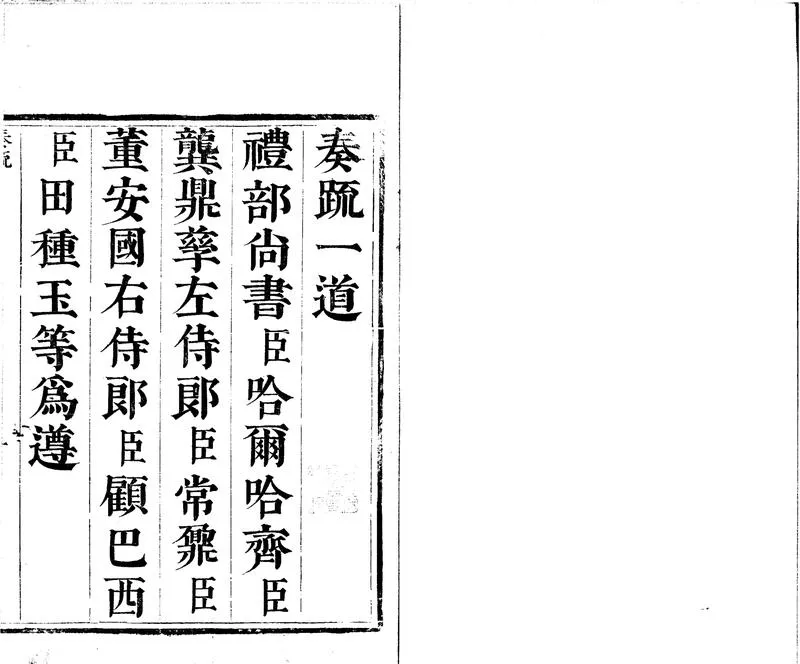 奏疏一道
禮部尚書臣哈爾哈齊臣
龔鼎孳左侍郎臣常鼐臣
董安國右侍郎臣顧巴西
臣田種玉等為遵
奏疏